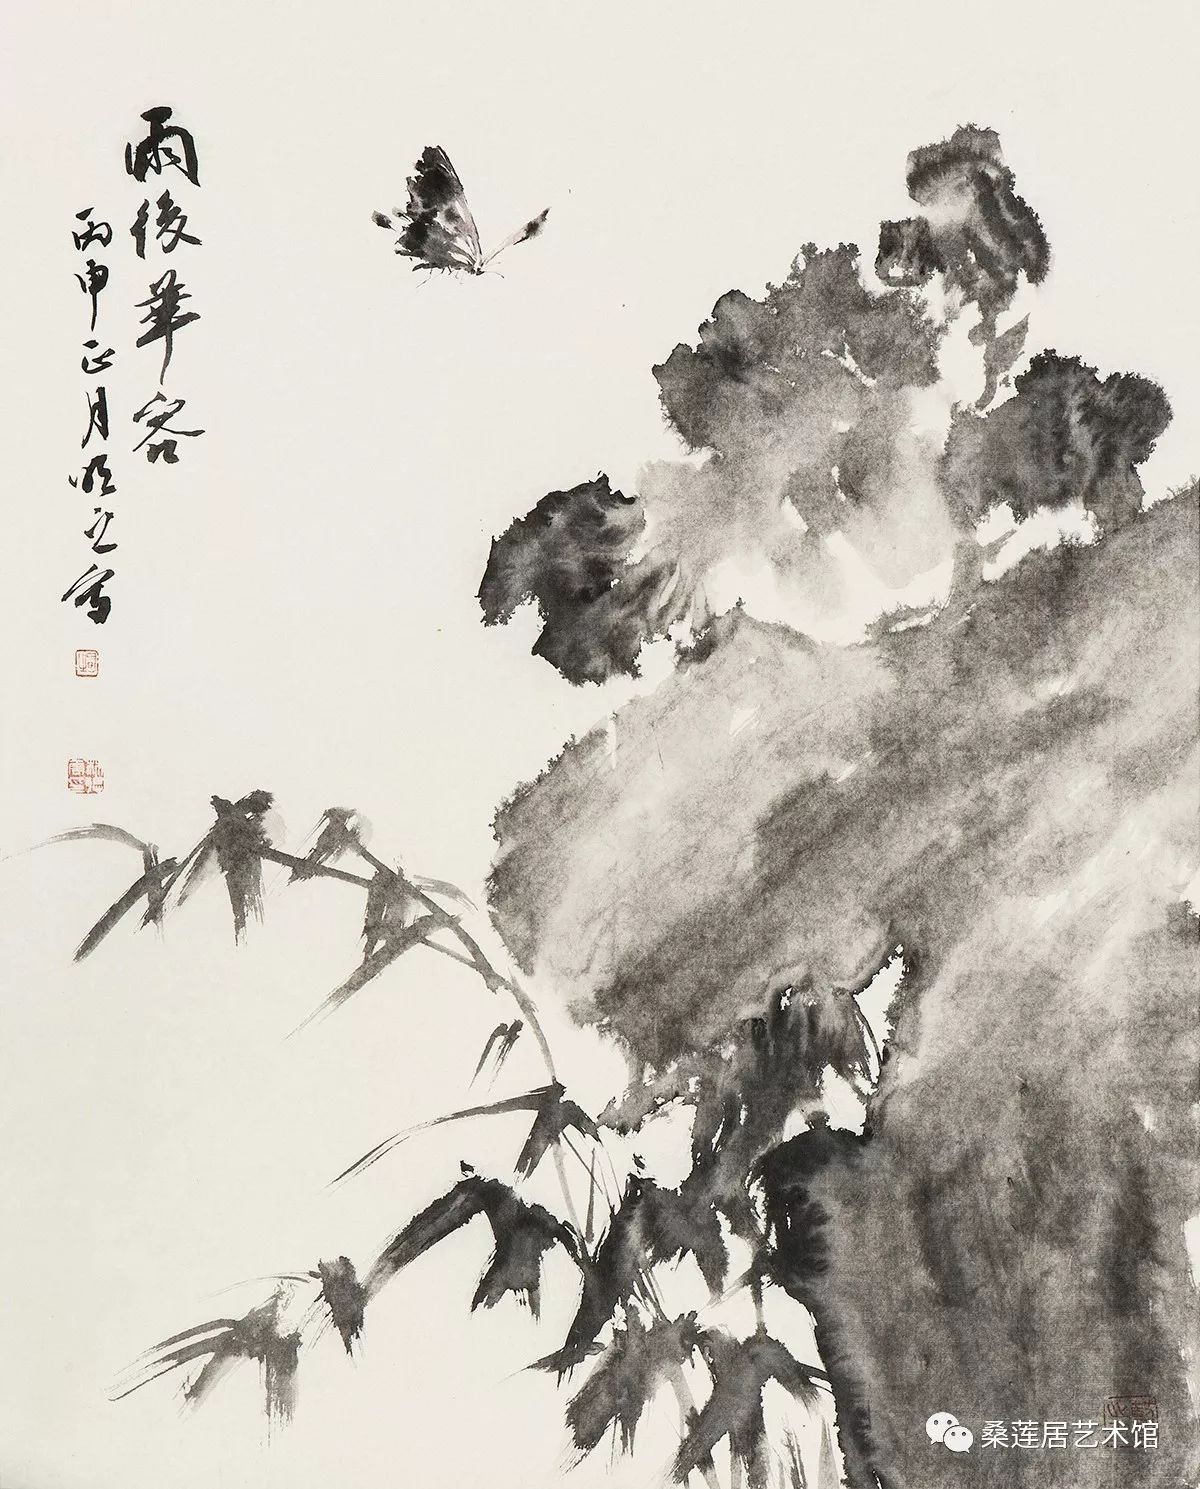 雨後華容
丙申正月明之寫
桑莲居艺术馆